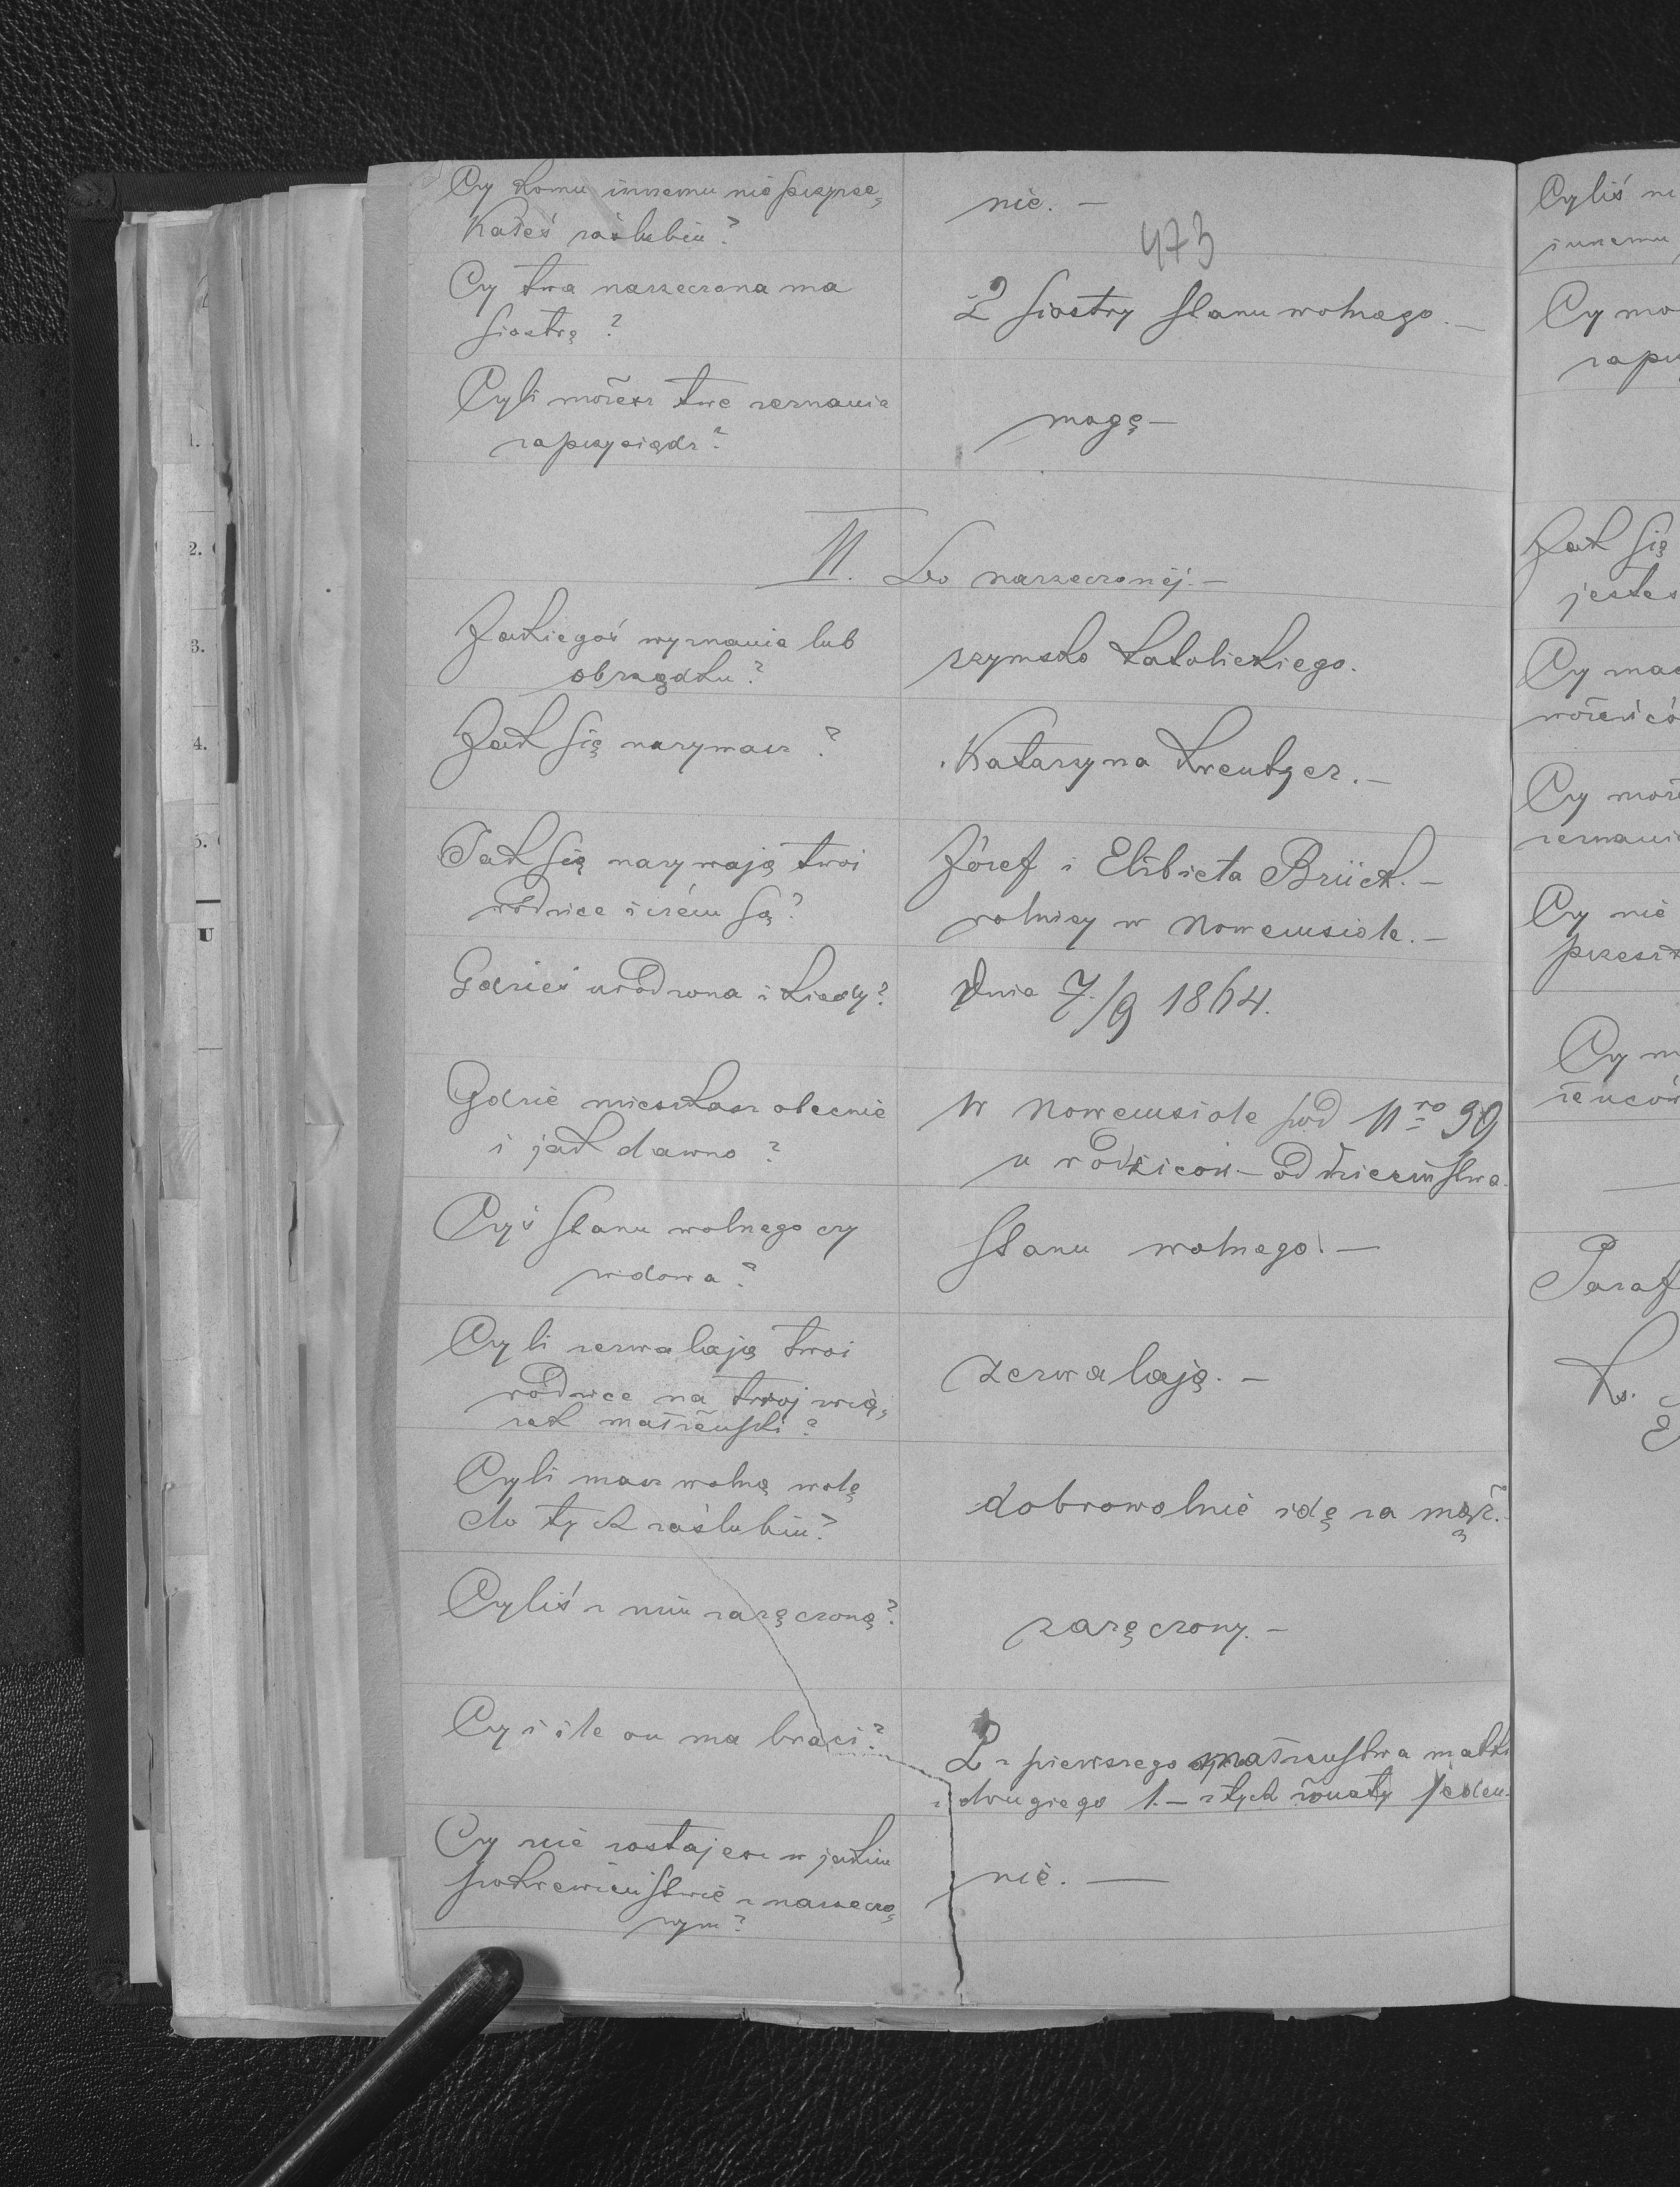 Czy komu innemu nie przyrze„
kałeś zaślubin?
nie. —
473
Czy twa narzeczona ma
siostrę?
2 siostry stanu wolnego. —
Czyli możesz twe zeznania
zaprzysiądz?
mogę —
II. Do narzeczonéj. —
Jakiegoś wyznania lub
obrządku?
rzymsko katolickiego.
Jak się nazywasz?
Katarzyna Kreutzer. —
Jak się nazywają twoi
rodzice i czém są?
Józef i Elżbieta Brück. —
rolnicy w Nowemsiole. —
Gdzieś urodzona i kiedy?
dnia 7./9 1864.
Gdzie mieszkasz obecnie
i jak dawno?
W Nowemsiole pod Nro 39
u rodziców — od dzieciństwa.
Czyś stanu wolnego czy
wdowa?
stanu wolnego. —
Czyli zezwalają twoi
rodzice na twój zwią„
zek małżeński?
zezwalają. —
Czyli masz wolną wolę
do tych zaślubin?
dobrowolnie idę za mąż.
Czyliś z nim zaręczoną?
zaręczony. —
Czy i ile on ma braci?
2 z pierwszego małżeństwa matki
z drugiego 1. — z tych żonaty jeden.
Czy nie zostajesz w jakim
pokrewieństwie z narzeczo„
nym?
nie. —
Czyliś
innemu
Czy
Jak się
jesteś
Czy
Czy
zeznania
Czy nie
Czy
Paraf
Ks.
1.
2.
3.
4.
5.
U